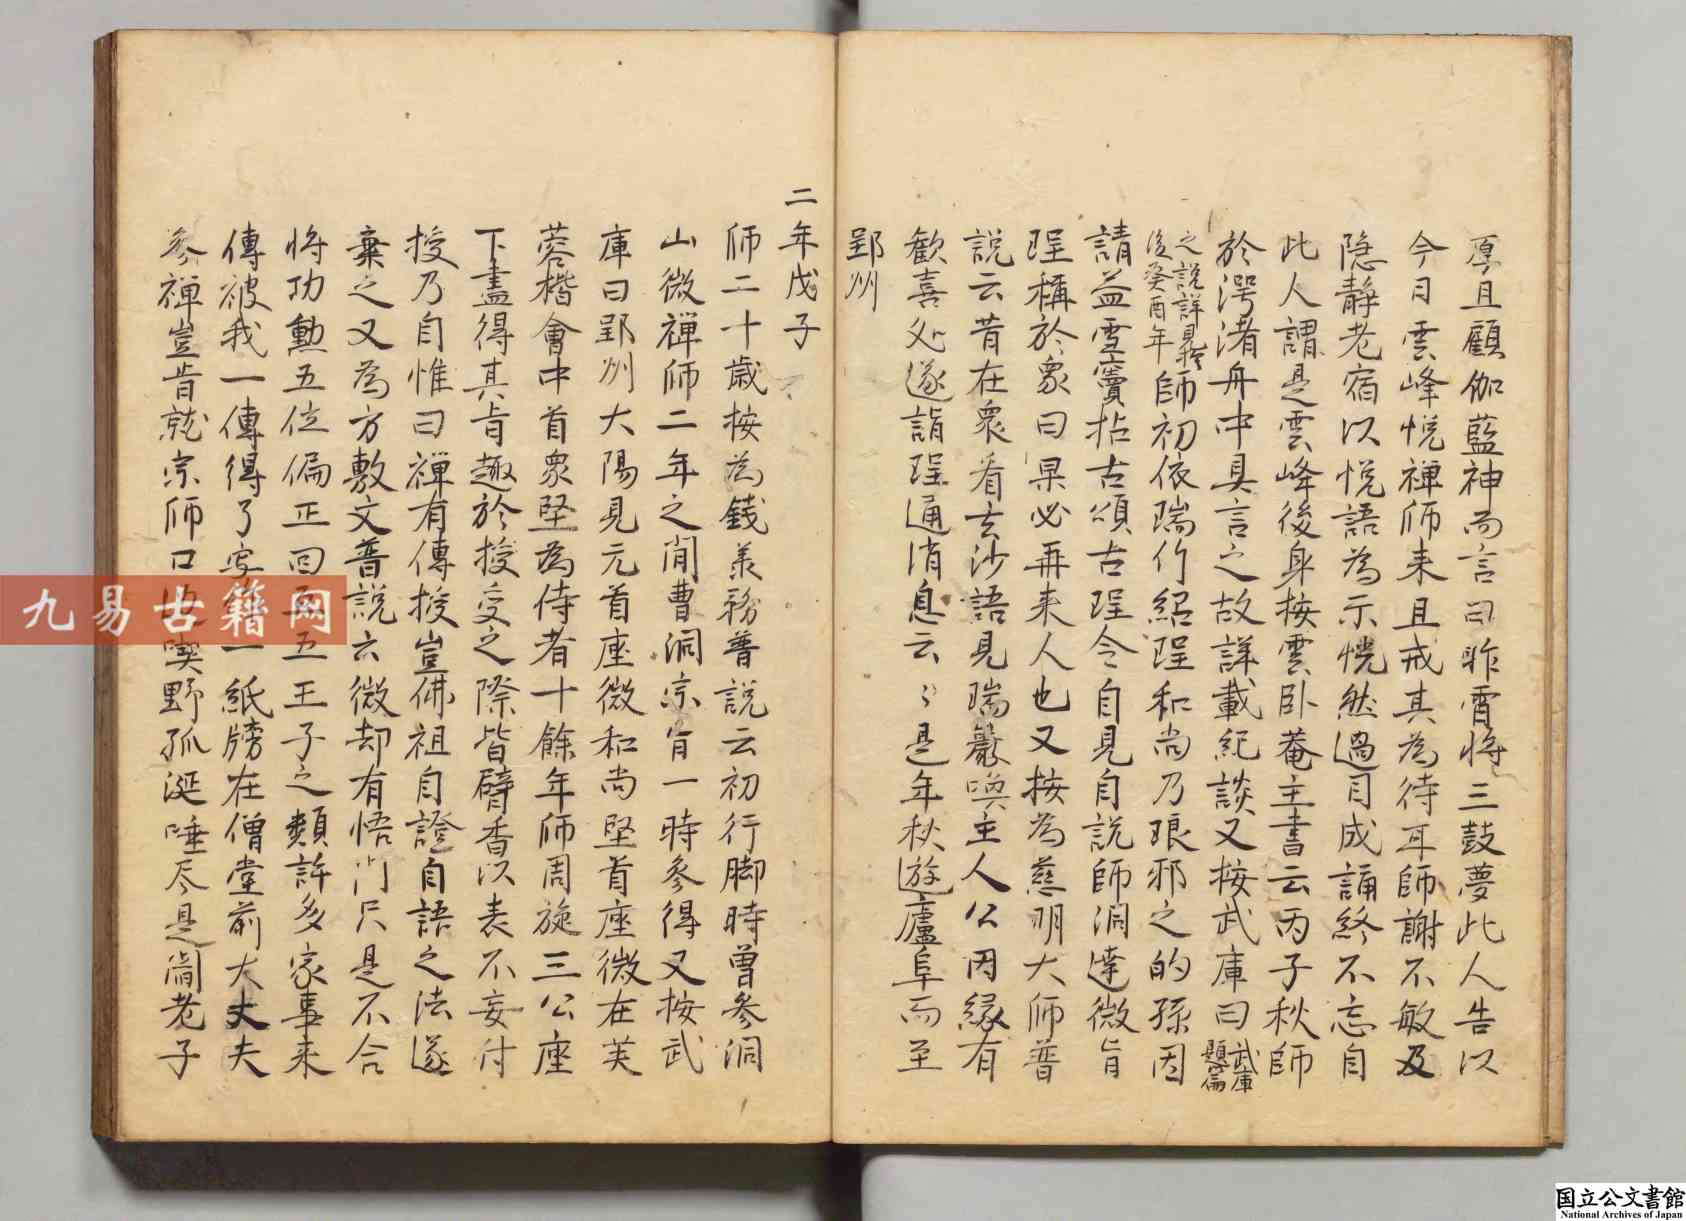 厚且顧伽藍神而言曰昨霄將三鼓夢此人告以
今日雲峰悅禪師来且戒其為待耳師謝不敏及
隐静老宿以悅語為示恍然過目成誦終不忘自
此人謂是雲峰後身按雲卧菴主書云丙子秋師
於渚舟中具言之故詳載紀談又按武庫曰武庫
題偏
之說詳見
後癸酉年師初依瑞竹紹珵和尚乃琅邪之的孫因
請益雪竇拈古頌古珵令自見自說師洞達微旨
珵稱於衆曰杲必再来人也又按為慈明大師普
說云昔在衆看玄沙語見瑞巖喚主人公因縁有
歡喜処遂詣珵通消息云々是年秋遊廬阜而至
郢州
二年戊子
師二十歳按為錢承務普說云初行脚時曽参洞
山微禪師二年之間曹洞宗旨一時参得又按武
庫曰郢州大陽見元首座微和尚堅首座微在芙
蓉楷會中首衆堅為侍者十餘年師周旋三公座
下盡得其旨趣於授受之際皆臂香以表不妄付
授乃自惟曰禪有傳授豈佛祖自證自語之法遂
棄之又為方敷文普說云微却有悟門只是不合
将功勳五位偏正回五王子之類許多家事来
傳被我一傳得了一紙牓在僧堂前大丈夫
参禪豈肯就宗師口喫野狐涎唾尽是閻老子
九易古籍网
国立公文書館
National Archives of Japan